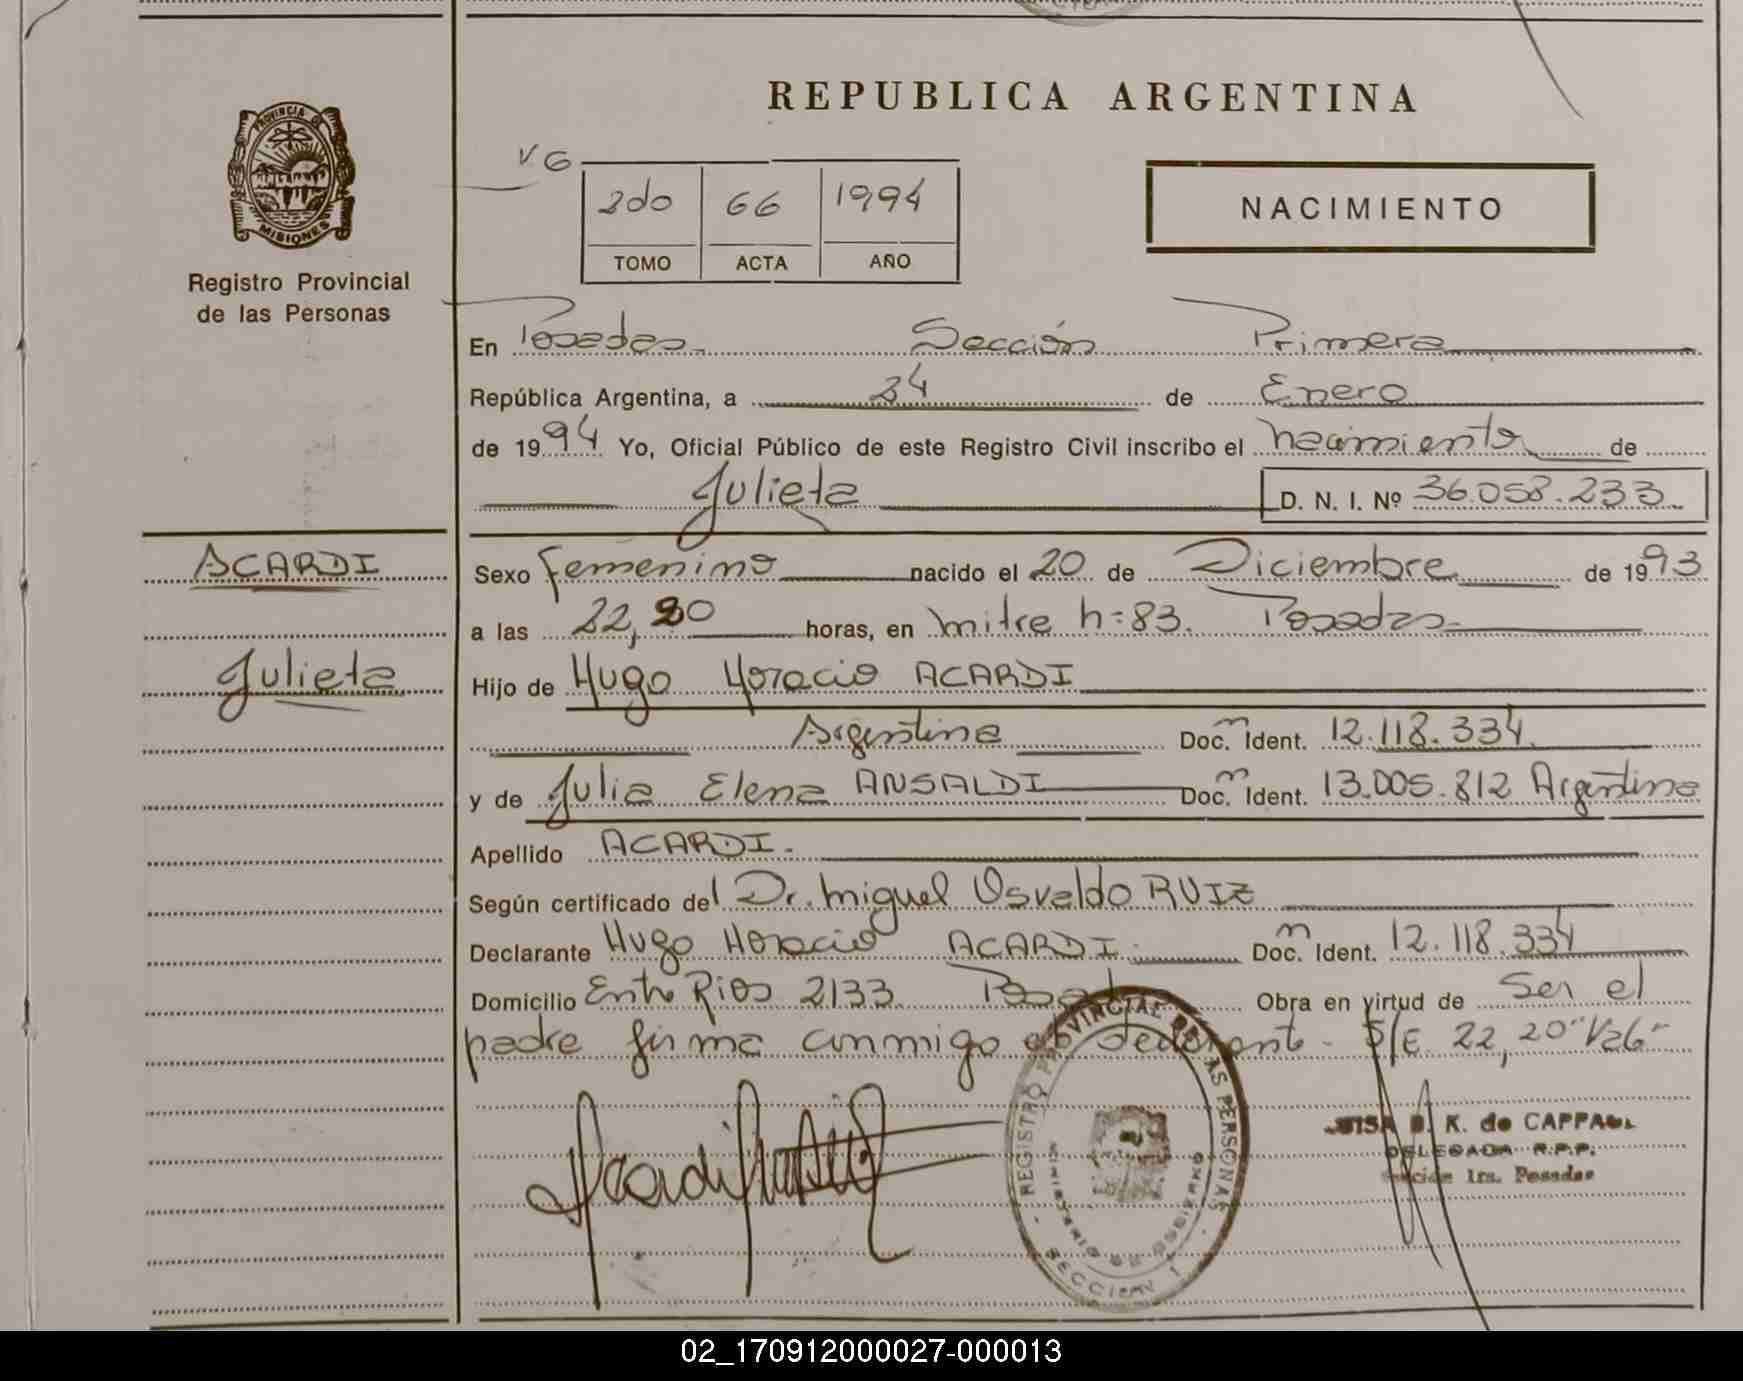 REPUBLICA ARGENTINA
PROVINCIA DE
MISIONES
Registro Provincial
de las Personas
VG
2do 66 1994
TOMO ACTA AÑO
NACIMIENTO
En Posadas Sección Primera
República Argentina, a 24 de Enero
de 1994 Yo, Oficial Público de este Registro Civil inscribo el nacimiento de
Julieta D. N. I. Nº 36.058.233
ACARDI
Julieta
Sexo femenino nacido el 20 de Diciembre de 1993
a las 22,20 horas, en mitre n=83. Posadas
Hijo de Hugo Horacio ACARDI
Argentina Doc. Ident. 12.118.334
y de Julia Elena ANSALDI Doc. Ident. 13.005.812 Argentina
Apellido ACARDI.
Según certificado del Dr. Miguel Osvaldo RUIZ
Declarante Hugo Horacio ACARDI Doc. Ident. 12.118.334
Domicilio Entre Rios 2133 Obra en virtud de Ser el
padre firma conmigo S/E 22,20 "Vale"
REGISTRO PROVINCIAL DE LAS PERSONAS
MINISTERIO DE GOBIERNO
SECCION 1
K. de
DELEGADA R.P.P.
1ra. Posadas
02_170912000027-000013